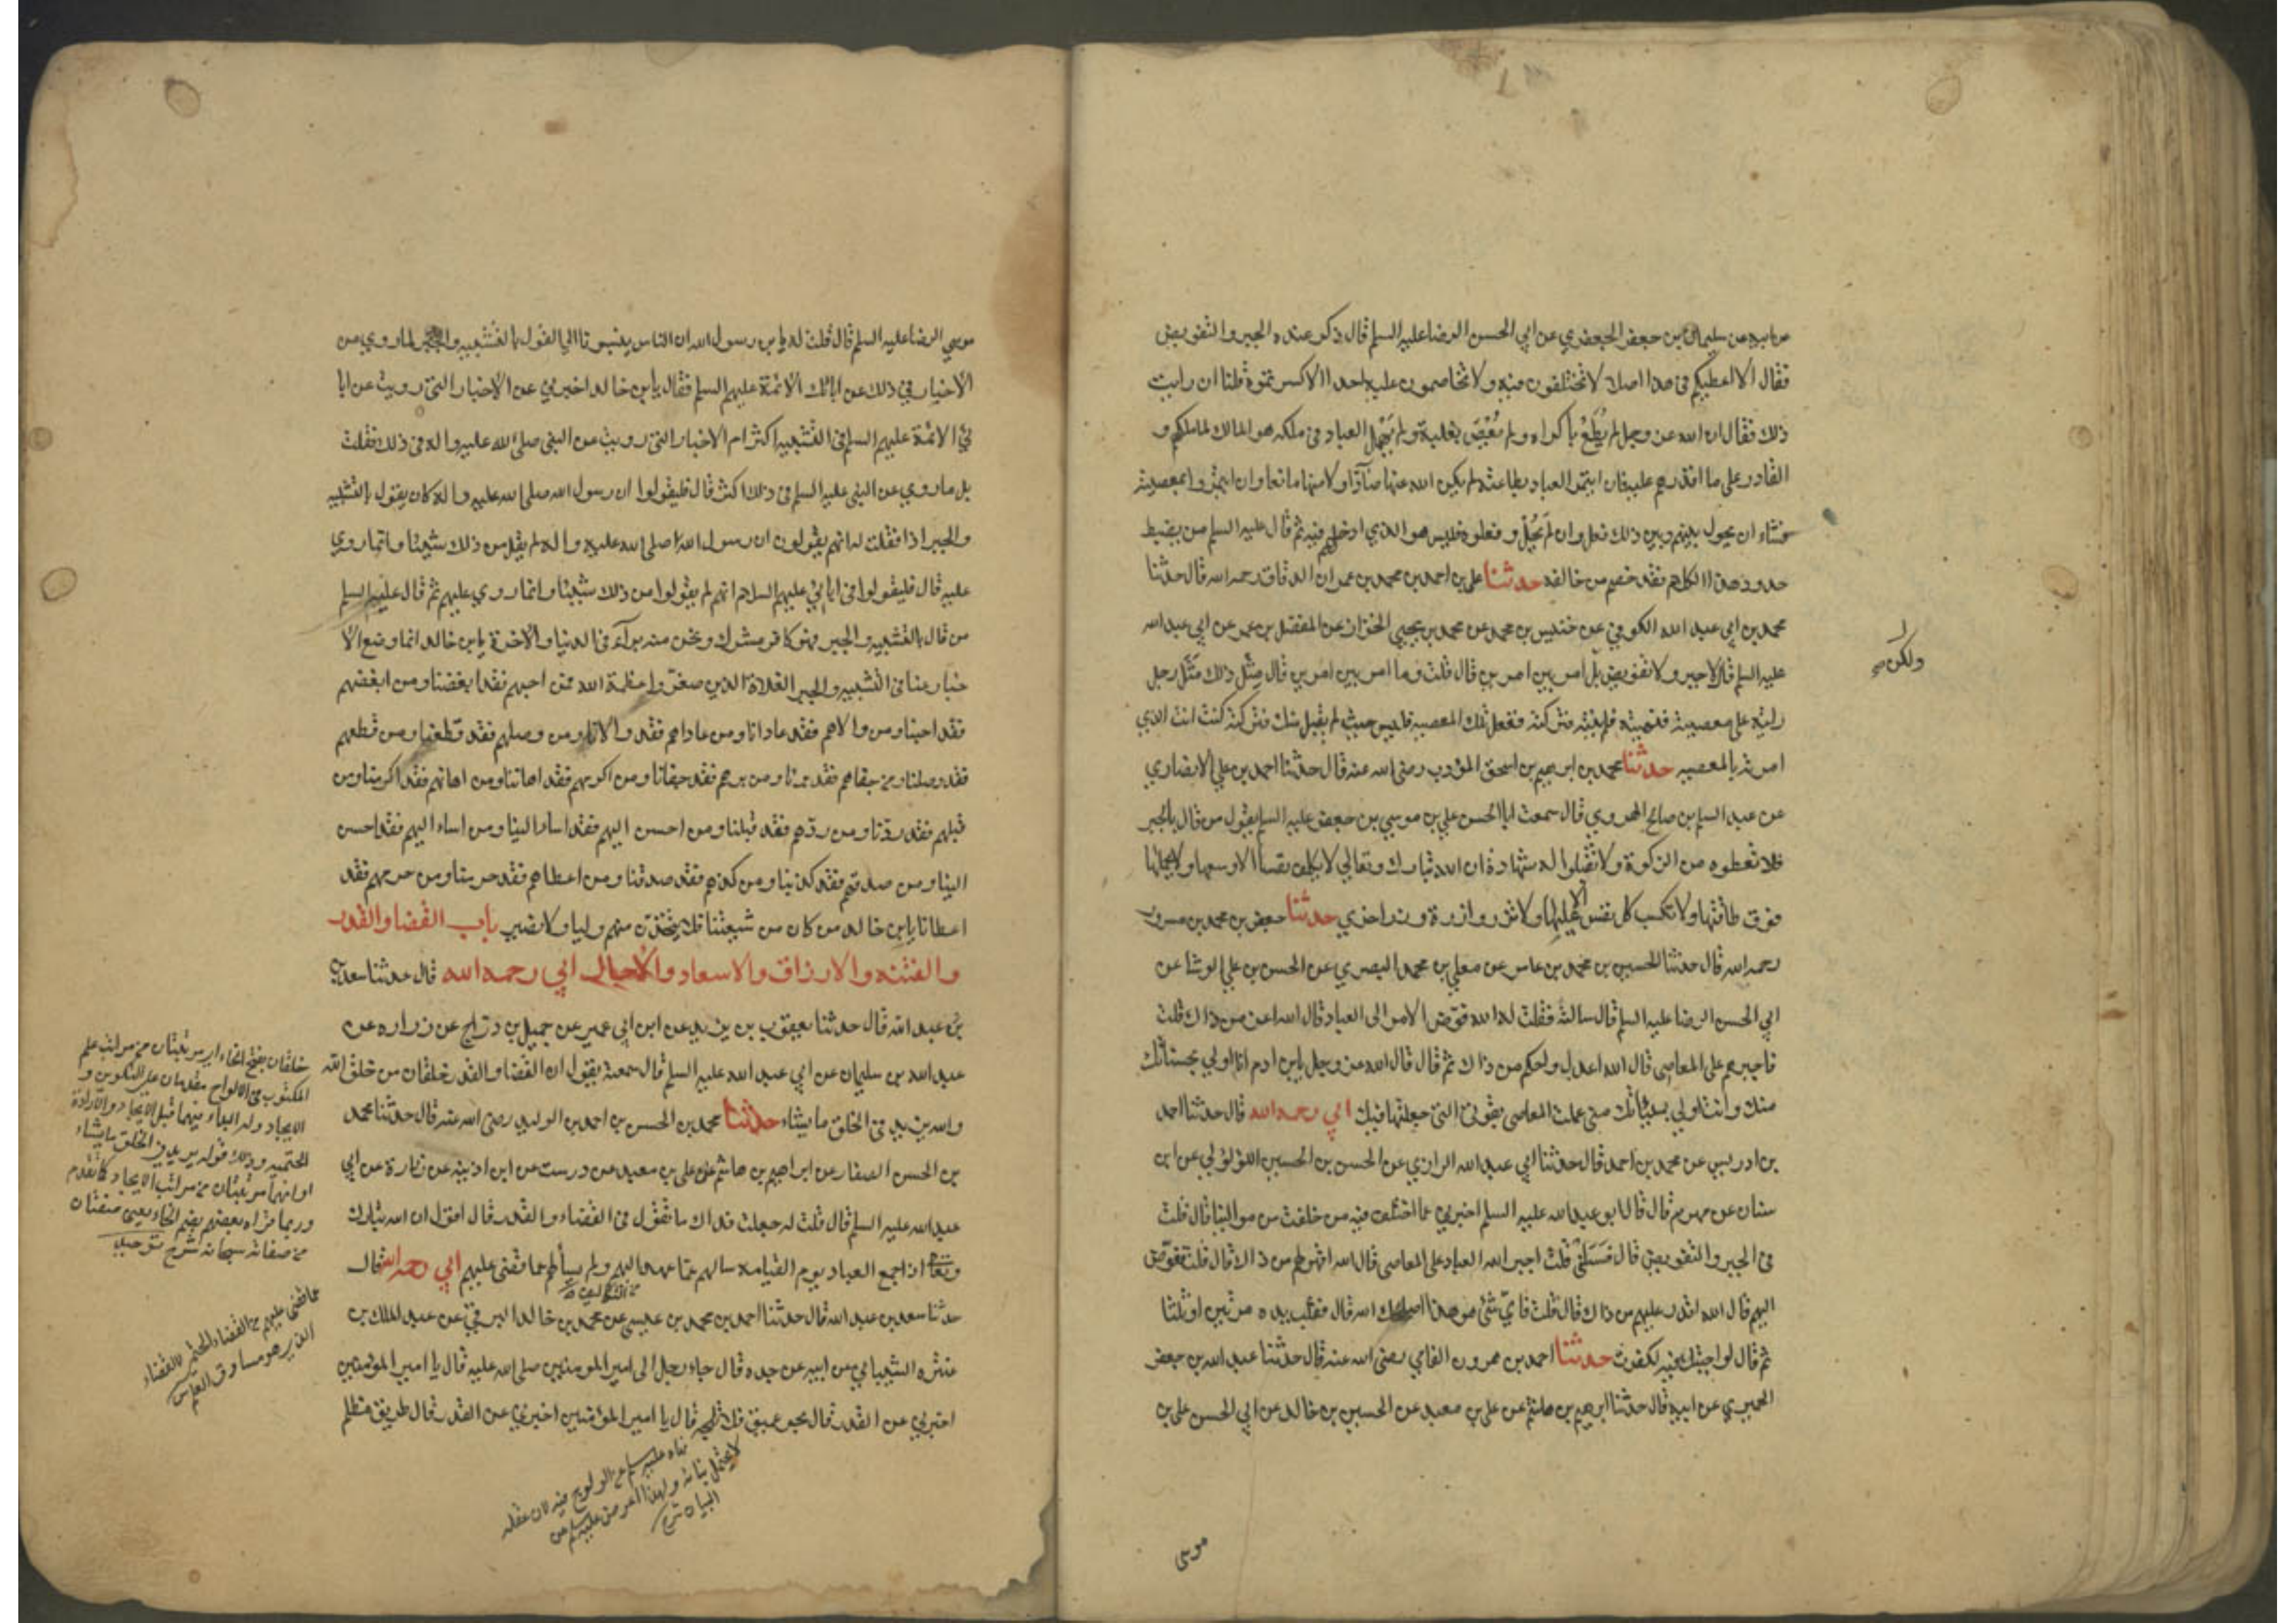 من ابيه عن سليمان بن جعفر الجعفري عن ابي الحسن الرضا عليه السلم قال ذكر عنده الجبر والتفويض
فقال الا اعطيكم في هذا اصلا لا تختلفون فيه ولا تخاصمون عليه احدا الا كسرتموه قلنا ان رايت
ذلك فقال ان الله عز وجل لم يُطَعْ باكراه ولم يُعْصَ بغلبة ولم يُهْمِل العباد في ملكه هو المالك لما ملكهم و
القادر على ما اقدرهم عليه فان ايتمر العباد بطاعته لم يكن الله عنها صادّا ولا منها مانعا وان ايتمروا بمعصيته
فشاء ان يحول بينهم وبين ذلك فعل وان لم يَحُلْ وفعلوه فليس هو الذي ادخلهم فيه ثم قال عليه السلم من يضبط
حدود هذا الكلام فقد خصم من خالفه حدثنا علي بن احمد بن محمد بن عمران الدقاق رحمه الله قال حدثنا
محمد بن ابي عبد الله الكوفي عن خنيس بن محمد عن محمد بن يحيى الخزاز عن المفضل بن عمر عن ابي عبد الله
عليه السلم قال لا جبر ولا تفويض بل امر بين امرين قال قلت وما امر بين امرين قال مِثْل ذلك مَثَل رجل
ولكن
رايته على معصية فنهيته فلم ينته فتركته ففعل تلك المعصية فليس حيث لم يقبل منك فتركته كنت انت الذي
امرته بالمعصيه حدثنا محمد بن ابرهيم بن اسحق المؤدب رضى الله عنه قال حدثنا احمد بن علي الانصاري
عن عبد السلم بن صالح الهروي قال سمعت ابا الحسن علي بن موسى بن جعفر عليه السلم يقول من قال بالجبر
فلا تعطوه من الزكوة ولا تقبلوا له شهادة ان الله تبارك وتعالي لا يكلف نفسا الا وسعها ولا يحملها
فوق طاقتها ولا تكسب كل نفس الا عليها ولا تزر وازرة وزر اخري حدثنا جعفر بن محمد بن مسرور
رحمه الله قال حدثنا الحسين بن محمد بن عامر عن معلي بن محمد البصري عن الحسن بن علي الوشا عن
ابي الحسن الرضا عليه السلم قال سالته فقلت له الله فوّض الامر الى العباد قال الله اعز من ذاك قلت
فاجبرهم على المعاصي قال الله اعدل واحكم من ذاك ثم قال قال الله عز وجل يابن ادم انا اولي بحسناتك
منك وانت اولي بسيئاتك مني عملت المعاصي بقوتي التي جعلتها فيك ابي رحمه الله قال حدثنا احمد
بن ادريس عن محمد بن احمد قال حدثنا ابي عبد الله الرازي عن الحسن بن الحسين اللؤلؤي عن ابن
سنان عن مهزم قال قال ابو عبد الله عليه السلم اخبرني عما اختلف فيه من خلفت من موالينا قال قلت
في الجبر والتفويض قال فَسَلْني قلت اجبر الله العباد على المعاصي قال الله اقهر لهم من ذلك قال قلت ففوّض
اليهم قال الله اقدر عليهم من ذاك قال قلت فايّ شئ هو هذا اصلحك الله قال فقلب يده مرتين او ثلثا
ثم قال لو اجبتك فيه لكفرت حدثنا احمد بن هرون الفامي رضى الله عنه قال حدثنا عبد الله بن جعفر
الحميري عن ابيه قال حدثنا ابرهيم بن هاشم عن علي بن معبد عن الحسين بن خالد عن ابي الحسن على بن
موسى
موسي الرضا عليه السلم قال قلت له يا بن رسول الله ان الناس ينسبوننا الي القول بالتشبيه والجبر لما روي من
الاخبار في ذلك عن ابائك الائمة عليهم السلم فقال يابن خالد اخبرني عن الاخبار التي رويت عن ابا
ئي الائمة عليهم السلم في التشبيه اكثر ام الاخبار التي رويت عن النبي صلى الله عليه واله في ذلك فقلت
بل ما روي عن النبي عليه السلم في ذلك اكثر قال فليقولوا ان رسول الله صلى الله عليه واله كان يقول بالتشبيه
والجبر اذا فقلت له انهم يقولون ان رسول الله صلى الله عليه واله لم يقل من ذلك شيئا وانما روي
عليه قال فليقولوا في ابائي عليهم السلام انهم لم يقولوا من ذلك شيئا وانما روي عليهم ثم قال عليه السلم
من قال بالتشبيه والجبر فهو كافر مشرك ونحن منه برآء في الدنيا والاخرة يابن خالد انما وضع الا
خبار عنا في التشبيه والجبر الغلاة الذين صغروا عظمة الله فمن احبهم فقد ابغضنا ومن ابغضهم
فقد احبنا ومن والاهم فقد عادانا ومن عاداهم فقد والانا ومن وصلهم فقد قطعنا ومن قطعهم
فقد وصلنا ومن جفاهم فقد برنا ومن برهم فقد جفانا ومن اكرمهم فقد اهاننا ومن اهانهم فقد اكرمنا ومن
قبلهم فقد ردّنا ومن ردّهم فقد قبلنا ومن احسن اليهم فقد اساء الينا ومن اساء اليهم فقد احسن
الينا ومن صدقهم فقد كذبنا ومن كذبهم فقد صدقنا ومن اعطاهم فقد حرمنا ومن حرمهم فقد
اعطانا يابن خالد من كان من شيعتنا فلا يتخذنّ منهم وليا ولا نصير باب القضا والقدر
والفتنه والارزاق والاسعار والاجال ابي رحمه الله قال حدثنا سعد
بن عبد الله قال حدثنا يعقوب بن يزيد عن ابن ابي عمير عن جميل بن دراج عن زراره عن
عبد الله بن سليمان عن ابي عبد الله عليه السلم قال سمعته يقول ان القضا والقدر خلقان من خلق الله
والله يزيد في الخلق ما يشاء حدثنا محمد بن الحسن بن احمد بن الوليد رضى الله عنه قال حدثنا محمد
بن الحسن الصفار عن ابراهيم بن هاشم عن علي بن معبد عن درست عن ابن اذينه عن زرارة عن ابي
عبد الله عليه السلم قال قلت له جعلت فداك ما تقول في القضاء والقدر قال اقول ان الله تبارك
وتعالى اذا جمع العباد يوم القيامه سالهم عما عهد اليهم ولم يسألهم عما قضى عليهم ابي رحمه الله قال
من التكاليف
حدثنا سعد بن عبد الله قال حدثنا احمد بن محمد بن عيسى عن محمد بن خالد البرقي عن عبد الملك بن
عنتره الشيباني عن ابيه عن جده قال جاء رجل الى امير المومنين صلى الله عليه قال يا امير المؤمنين
اخبرني عن القدر قال بحر عميق فلا تلجه قال يا امير المؤمنين اخبرني عن القدر قال طريق مظلم
خلقان بفتح الخاء اي مرتبتان من مراتب علم
المكتوب في الالواح مقدمان على التكوين و
الايجاد وله البداء فيهما قبل الايجاد والارادة
الحتميه وذلك قوله يزيد في الخلق ما يشاء
او انهما مرتبتان من مراتب الايجاد كما تقدم
وربما قراه بعضهم بضم الخاء يعنى صفتان
من صفاته سبحانه شرح توحيد
عما قضى عليهم من القضاء الحتم
الذي هو مساوق العلم
نهاه عليه السلم عن الولوج فيه لان عقله
لا يحتمل بيانه ولهذا اعرض عليه السلم عن
البيان